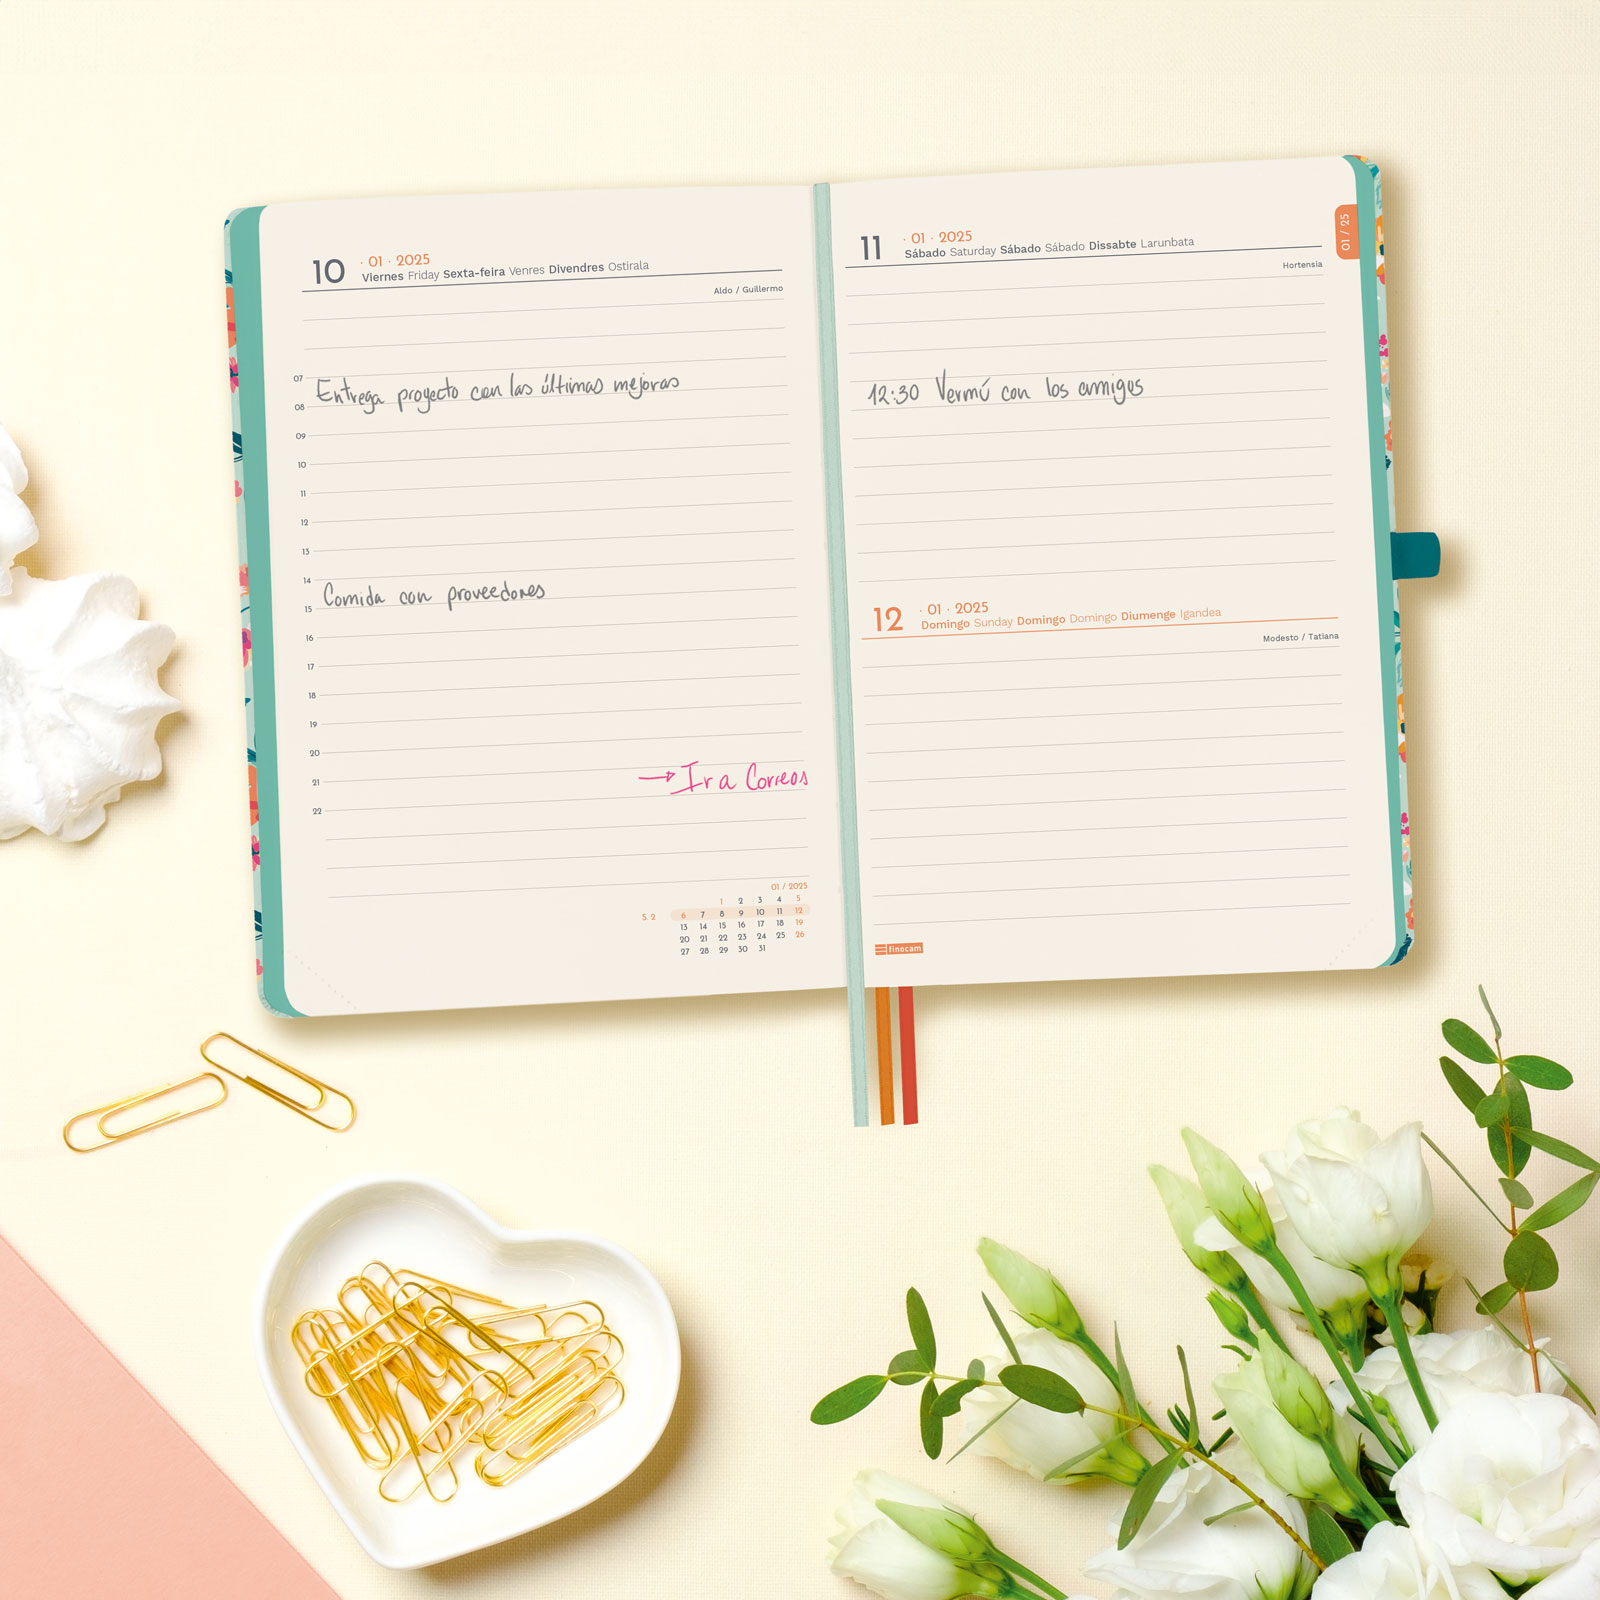 10 · 01 · 2025
Viernes Friday Sexta-feira Venres Divendres Ostirala
Aldo / Guillermo
07
Entrega proyecto con las últimas mejoras
08
09
10
11
12
13
14
Comida con proveedores
15
16
17
18
19
20
21
→ Ir a Correos
22
01 / 2025
1 2 3 4 5
S. 2 6 7 8 9 10 11 12
13 14 15 16 17 18 19
20 21 22 23 24 25 26
27 28 29 30 31
11 · 01 · 2025
Sábado Saturday Sábado Sábado Dissabte Larunbata
Hortensia
01 / 25
12:30 Vermú con los amigos
12 · 01 · 2025
Domingo Sunday Domingo Domingo Diumenge Igandea
Modesto / Tatiana
finocam